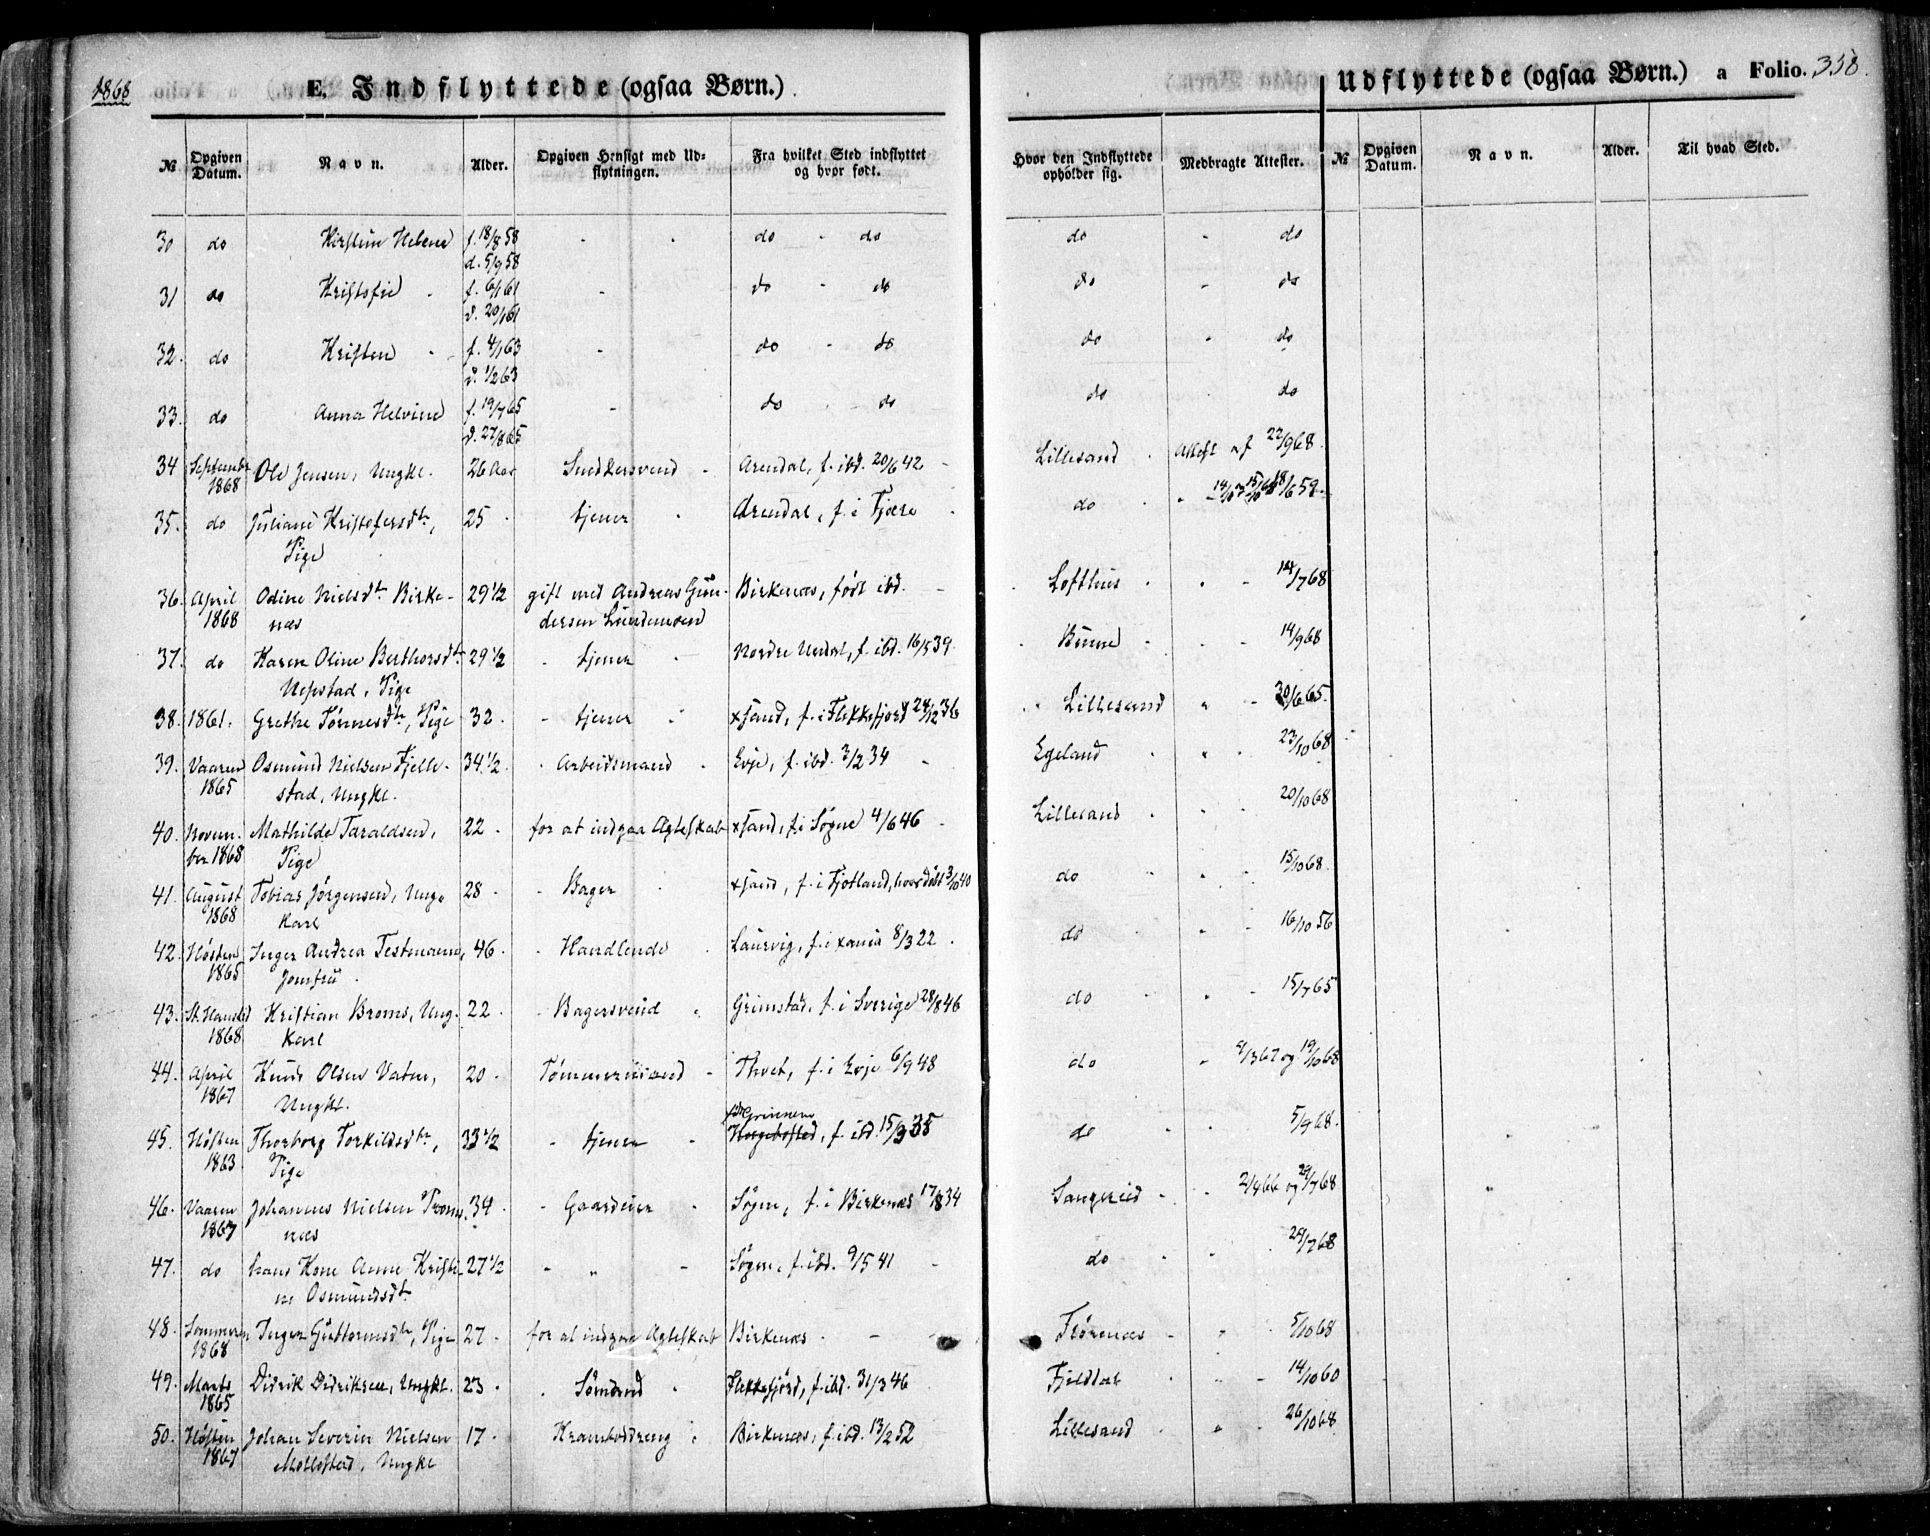 1868
E. Indflyttede (ogsaa Børn.)
Udflyttede (ogsaa Børn.) a Folio. 358.
№ Opgiven Datum. Navn. Alder. Opgiven Hensigt med Udflytningen. Fra hvilket Sted indflyttet og hvor født. Hvor den Indflyttede opholder sig. Medbragte Attester. № Opgiven Datum. Navn. Alder. Til hvad Sted.
30 do Kirstine Helene f. 18/8 58 do - do do - do
d. 5/9 58
31 do Kristofie f. 6/1 61 do - do do - do
d. 20/1 61
32. do Kristen f. 4/1 63 do - do do - do
d. 1/2 63
33. do Anna Helvine f. 19/7 65 do do do do
d. 27/8 65
34 September Ole Jensen, Ungkl. 26 Aar Snedkersvend Arendal, f. ibd. 20/6 42 Lillesand Attest af 22/9 68.
1868
35. do Juliane Kristofersdtr, 25 tjener Arendal, f. i Fjære do
Pige
36. April Odine Nielsdtr Birke- 29 1/2 gift med Andreas Gun- Birkenæs, født ibd. Lofthus 14/7 68
1868 næs dersen Lundemoen
37. do Karen Oline Berthorsdtr 29 1/2 tjener Nordre Undal, f. ibd. 16/5 39. 14/9 68
Nepstad, Pige
38. 1861. Grethe Tønnesdtr, Pige 32 tjener xsand, f. i Flekkefjord 24/12 36 Lillesand 30/6 65.
39. Vaaren Osmund Nielsen Fjelle- 34 1/2 Arbeidsmand Evje, f. ibd. 3/2 34 Egeland 23/10 68
1865 stad, Ungkl.
40. Novem- Mathilde Taraldsen, 22 for at indgaa Ægteskab xsand, f. i Søgne 4/6 46 Lillesand 20/10 68
ber 1868 Pige
41. August Tobias Jørgensen, Ung- 28 Bager xsand, f. i Fjotland, hvor døbt 3/10 40 do 15/10 68.
1868 karl
42. Høsten Inger Andrea Testmann, 46 Handlende Laurvig, f. i xania 8/3 22 do 16/10 56
1865 Jomfru
43. St. Hansted Kristian Broms, Ung- 22 Bagersvend Grimstad, f. i Sverige 28/8 46 do 15/7 65
1868 karl
44. April Knud Olsen Vatne, 20 Tømmermand Thvet, f. i Evje 6/9 48 do og 19/10 68
1867 Ungkl.
45. Høsten Thorborg Torkildsdtr, 33 1/2 tjener f. ibd. 15/3 35 do
1863 Pige
46. Vaaren Johannes Nielsen Trom- 34 Gaardeier Søgne, f. i Birkenæs 17/8 34 2/4 66 og 29/7 68
1867 næs
47. do hans Kone Anne Kristi- 27 1/2 - " - Søgne, f. ibd. 9/5 41 do 29/7 68
ne Osmundsdtr
48. Sommeren Inger Guttormsdtr, Pige 27 for at indgaa Ægteskab Birkenæs 5/10 68
1868
49. Marts Didrik Didriksen, Ungkl. 23 Sømand Flekkefjord, f. ibd. 31/3 46 Fjelddal 14/10 60
1865
50. Høsten Johan Severin Nielsen 17 Kramboddreng Birkenæs, f. ibd. 13/2 52 Lillesand 26/10 68
1867 Mollestad, Ungkl